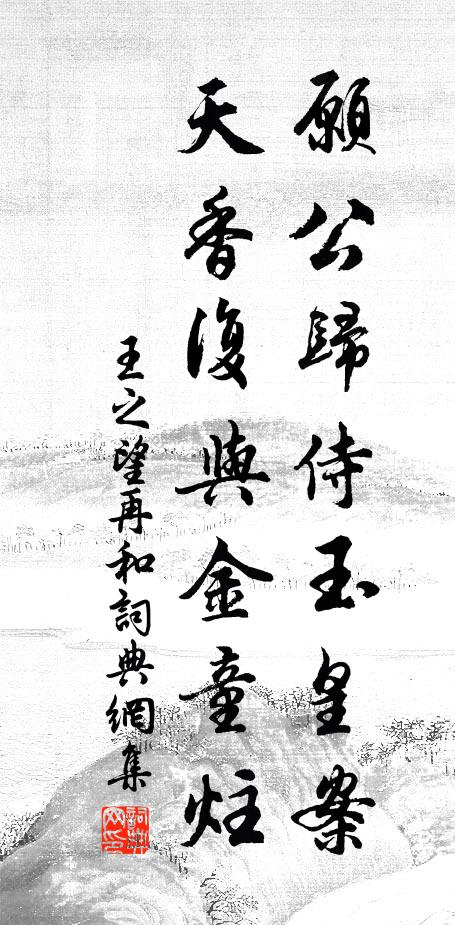 願公歸侍玉皇案
天香復與金童炷
王之望再和詞典網集